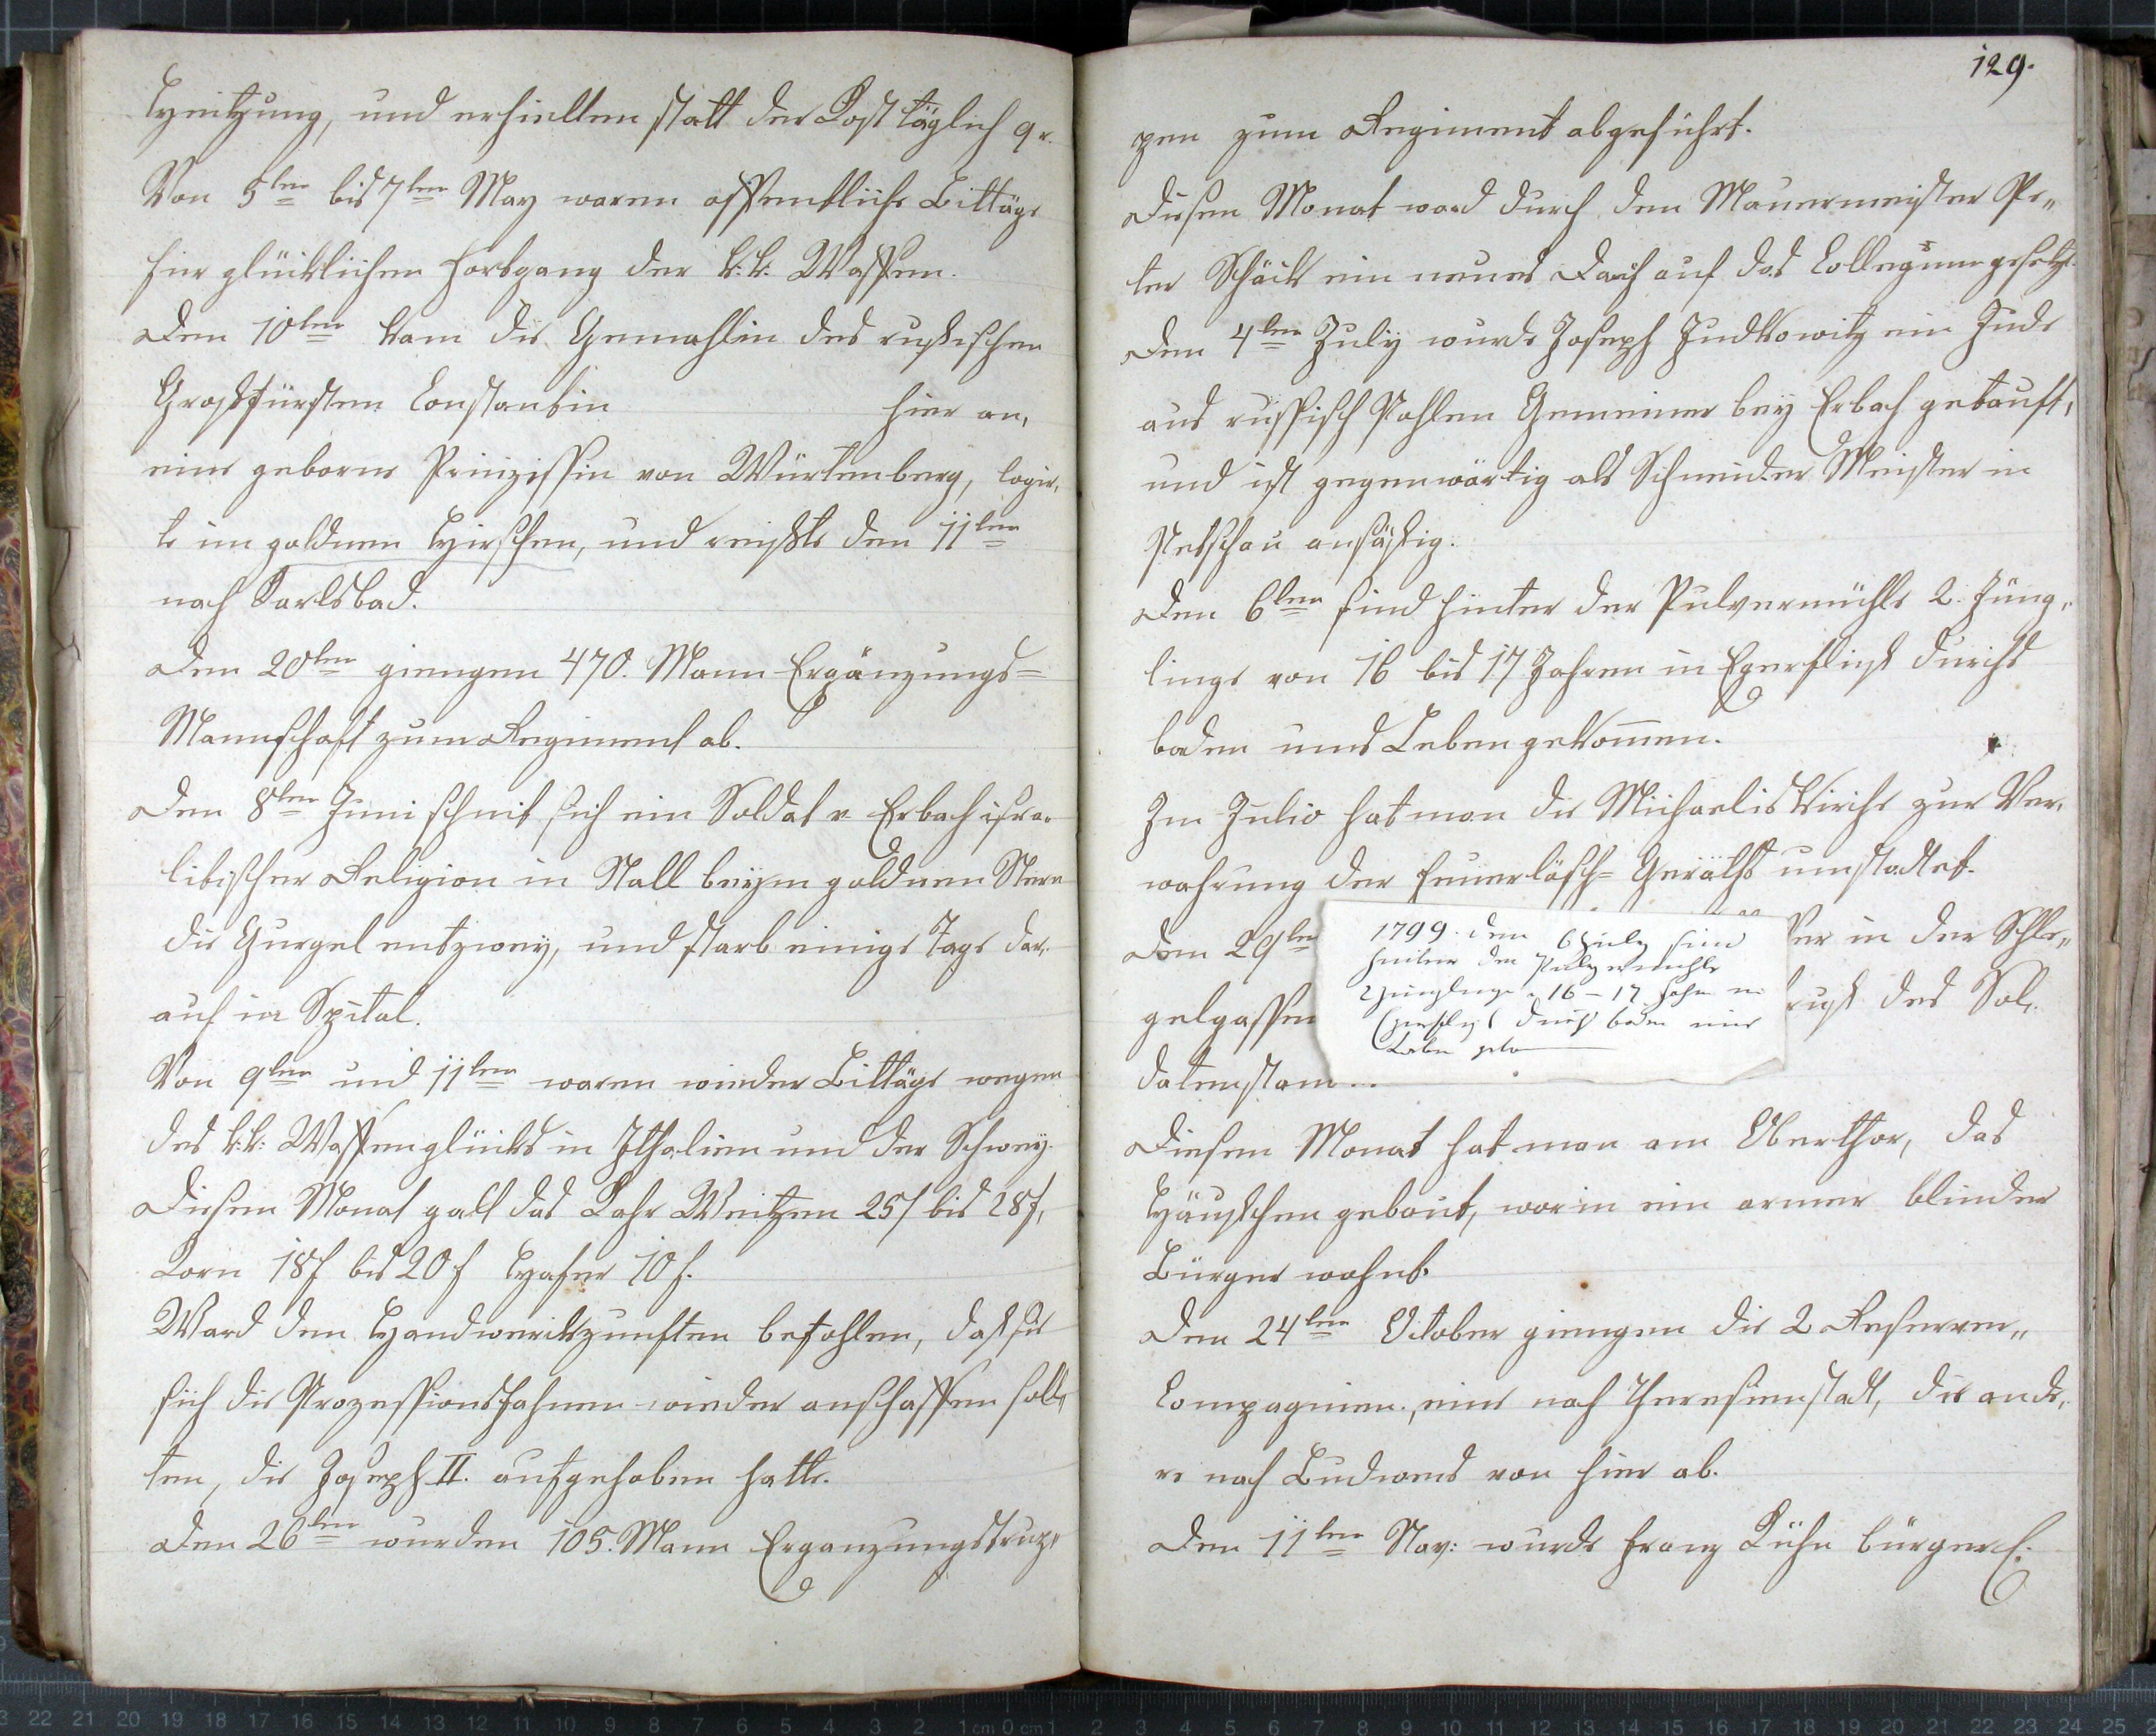 Heitzung, und erhielten statt der Kost täglich 9 x.
Von 5ten bis 7ten May waren öffentliche Bittäge
für glücklichen Fortgang der k: k: Waffen.
Den 10ten kam die Gemahlin des rußischen
Großfürsten Constantin hier an,
eine geborne Prinzessin von Würtenberg, logir„
te im goldnen Hirschen, und reißte den 11ten
nach Karlsbad.
Den 20ten giengen 470. Mann Ergänzungs=
Mannschaft zum Regiment ab.
Den 8ten Juni schnit sich ein Soldat v Erbach isra„
litischer Religion in Stall beym goldnen Stern
die Gurgel entzwey, und starb einige Tage dar„
auf in Spital.
Von 9ten und 11ten waren wieder Bittäge wegen
des k: k: Waffenglücks in Ithalien und der Schweiz.
Diesen Monat galt das Kahr Weitzen 25f bis 28f,
Korn 18f bis 20f Hafer 10f.
Ward den Handwerkszunften befohlen, daß sie
sich die Prozessionsfahnen wieder anschaffen soll„
ten, die Joseph II. aufgehoben hatte.
Den 26ten wurden 105. Mann Erganzungstrup„
129.
pen zum Regiment abgeführt.
Diesen Monat ward durch den Mauermeister Pe„
ter Schäck ein neues Dach auf das Collegium gesetzt.
Den 4ten July wurde Joseph Judkowitz ein Jude
aus russisch Pohlen Gemeiner bey Erbach getauft,
und ist gegenwärtig als Schneider Meister in
Petschau ansäßig.
Den 6ten sind hinter der Pulvermühle 2. Jüng„
linge von 16 bis 17 Jahren in Egerfluß durchs
baden ums Leben gekommen.
Im Julio hat man die Michaeliskirche zur Ver„
wahrung der Feuerlösch= Geräthe umstaltet.
Den 29ten in der Schle„
gelgassen des Sol„
datenstam
1799. den 6 July sind
hinter der Pulvermühle
2 Jünglinge v 16 – 17 Jahr in
Egerfluß durch baden ums
Leben geko
Diesem Monat hat man am Oberthor, das
Häuschen gebaut, worin ein armer blinder
Bürger wohnt.
Den 24ten October giengen die 2 Reserven„
Compagnien, eine nach Theresienstadt, die ande„
re nach Budweis von hier ab.
Den 11ten Nov: wurde Franz Kuhn bürgerl.